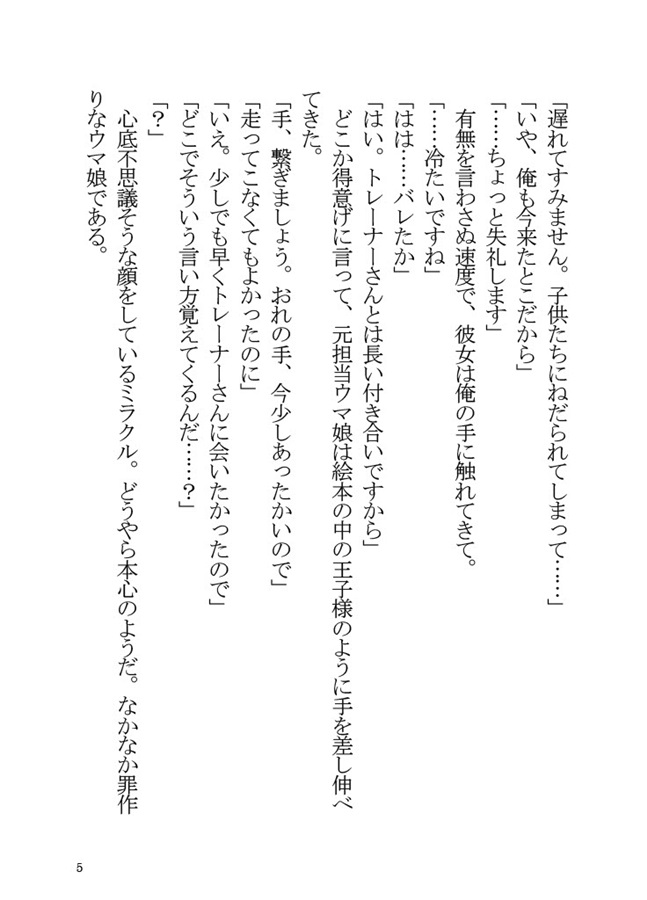 「遅れてすみません。子供たちにねだられてしまって……」
「いや、俺も今来たとこだから」
「……ちょっと失礼します」
　有無を言わさぬ速度で、彼女は俺の手に触れてきて。
「……冷たいですね」
「はは……バレたか」
「はい。トレーナーさんとは長い付き合いですから」
　どこか得意げに言って、元担当ウマ娘は絵本の中の王子様のように手を差し伸べ
てきた。
「手、繋ぎましょう。おれの手、今少しあったかいので」
「走ってこなくてもよかったのに」
「いえ。少しでも早くトレーナーさんに会いたかったので」
「どこでそういう言い方覚えてくるんだ……？」
「？」
　心底不思議そうな顔をしているミラクル。どうやら本心のようだ。なかなか罪作
りなウマ娘である。
5